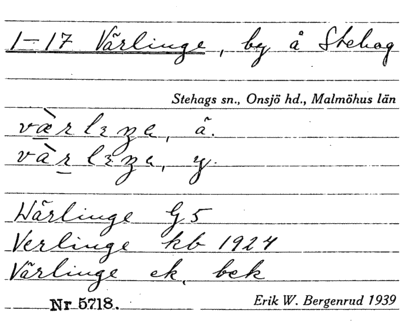 1–17 Värlinge, by å Stehag
Stehags sn., Onsjö hd., Malmöhus län
værlɪŋɛ, ä.
vàrlɪŋɛ, y.
Wärlinge G5
Verlinge kb 1924
Värlinge ek, bek
Nr 5718. Erik W. Bergenrud 1939